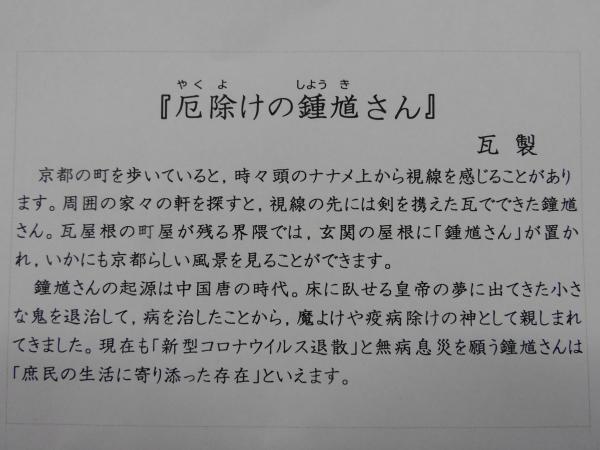 やくよ しようき
『厄除けの鍾馗さん』
瓦 製
京都の町を歩いていると，時々頭のナナメ上から視線を感じることがあり
ます。周囲の家々の軒を探すと，視線の先には剣を携えた瓦でできた鐘馗
さん。瓦屋根の町屋が残る界隈では，玄関の屋根に「鍾馗さん」が置か
れ，いかにも京都らしい風景を見ることができます。
鐘馗さんの起源は中国唐の時代。床に臥せる皇帝の夢に出てきた小さ
な鬼を退治して，病を治したことから，魔よけや疫病除けの神として親しまれ
てきました。現在も「新型コロナウイルス退散」と無病息災を願う鐘馗さんは
「庶民の生活に寄り添った存在」といえます。